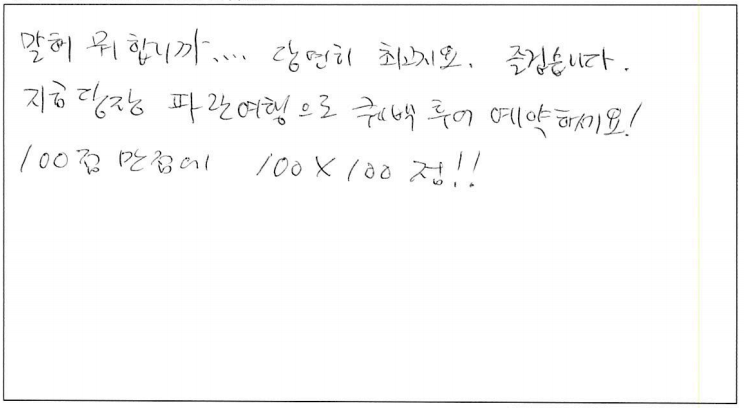 말해 뭐합니까.... 당연히 최고지요. 즐겁습니다.
지금당장 파란여행으로 퀘백 투어 예약하세요!
100점 만점에 100X100 점!!